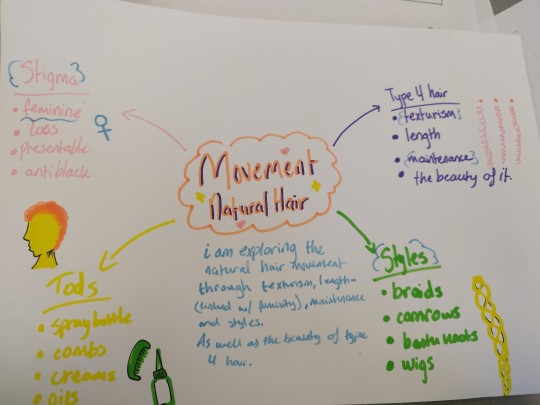 {Stigma}
• feminine
• loos
• presentable
• antiblack
Type 4 hair
• {texturism}
• length
• {maintenance}
• the beauty of it.
Movement
Natural Hair
Tools
• spray bottle
• combs
• creams
• oils
i am exploring the
natural hair movement
through texturism, length-
(linked w/ feminity), maintenance
and styles.
As well as the beauty of type
4 hair.
{Styles}
• braids
• cannrows
• bantu knots
• wigs